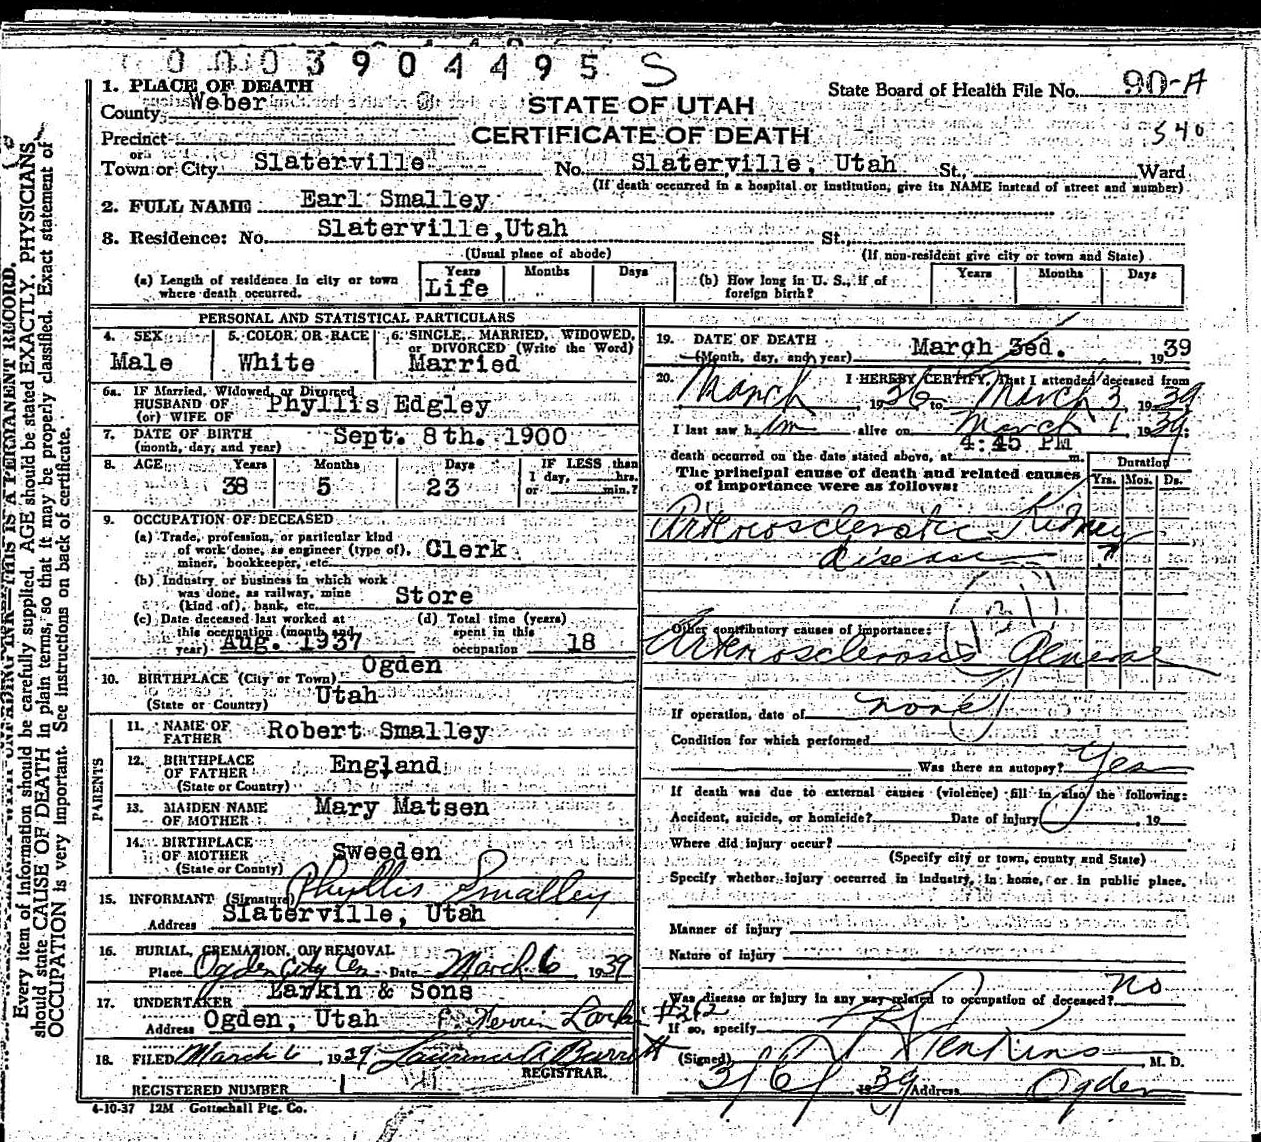 0003904495 S
1. PLACE OF DEATH
County Weber
Precinct
or
Town or City Slaterville
STATE OF UTAH
CERTIFICATE OF DEATH
State Board of Health File No. 90-A
540
No. Slaterville, Utah St., Ward
(If death occurred in a hospital or institution, give its NAME instead of street and number)
2. FULL NAME Earl Smalley
3. Residence: No. Slaterville,Utah St.,
(Usual place of abode) (If non-resident give city or town and State)
(a) Length of residence in city or town where death occurred. Years Life Months Days
(b) How long in U. S., if of foreign birth? Years Months Days
PERSONAL AND STATISTICAL PARTICULARS
4. SEX Male
5. COLOR OR RACE White
6. SINGLE, MARRIED, WIDOWED, or DIVORCED (Write the Word) Married
6a. IF Married, Widowed, or Divorced
HUSBAND OF Phyllis Edgley
(or) WIFE OF
7. DATE OF BIRTH Sept. 8th. 1900
(month, day, and year)
8. AGE Years 38 Months 5 Days 23 IF LESS than 1 day, hrs. or min.?
9. OCCUPATION OF DECEASED
(a) Trade, profession, or particular kind
of work done, as engineer (type of), Clerk
miner, bookkeeper, etc.
(b) Industry or business in which work
was done, as railway, mine Store
(kind of), bank, etc.
(c) Date deceased last worked at
this occupation (month and
year) Aug. 1937
(d) Total time (years)
spent in this
occupation 18
10. BIRTHPLACE (City or Town) Ogden
(State or Country) Utah
PARENTS
11. NAME OF FATHER Robert Smalley
12. BIRTHPLACE OF FATHER England
(State or Country)
13. MAIDEN NAME OF MOTHER Mary Matsen
14. BIRTHPLACE OF MOTHER Sweeden
(State or County)
15. INFORMANT (Signature) Phyllis Smalley
Address Slaterville, Utah
16. BURIAL, CREMATION, OR REMOVAL
Place Ogden City Cem Date March 6, 1939
17. UNDERTAKER Larkin & Sons
Address Ogden, Utah Larkin #262
18. FILED March 6, 1939 Laurence A Barrett
REGISTRAR.
REGISTERED NUMBER 1
4-10-37 12M Gottschall Ptg. Co.
19. DATE OF DEATH March 3ed. 1939
(Month, day, and year)
20. I HEREBY CERTIFY, That I attended deceased from
March 1936 to March 3, 1939
I last saw him alive on March 1 1939;
death occurred on the date stated above, at 4:45 PM m.
The principal cause of death and related causes
of importance were as follows:
Duration
Yrs. Mos. Ds.
Arteriosclerotic Kidney
disease ?
Other contributory causes of importance:
Arteriosclerosis General
If operation, date of none
Condition for which performed
Was there an autopsy? Yes
If death was due to external causes (violence) fill in also the following:
Accident, suicide, or homicide? Date of injury , 19
Where did injury occur?
(Specify city or town, county and State)
Specify whether injury occurred in industry, in home, or in public place.
Manner of injury
Nature of injury
Was disease or injury in any way related to occupation of deceased? No
If so, specify
(Signed) Jenkins M. D.
3/6/ 1939 Address Ogden
Every item of information should be carefully supplied. AGE should be stated EXACTLY. PHYSICIANS
should state CAUSE OF DEATH in plain terms, so that it may be properly classified. Exact statement of
OCCUPATION is very important. See instructions on back of certificate.